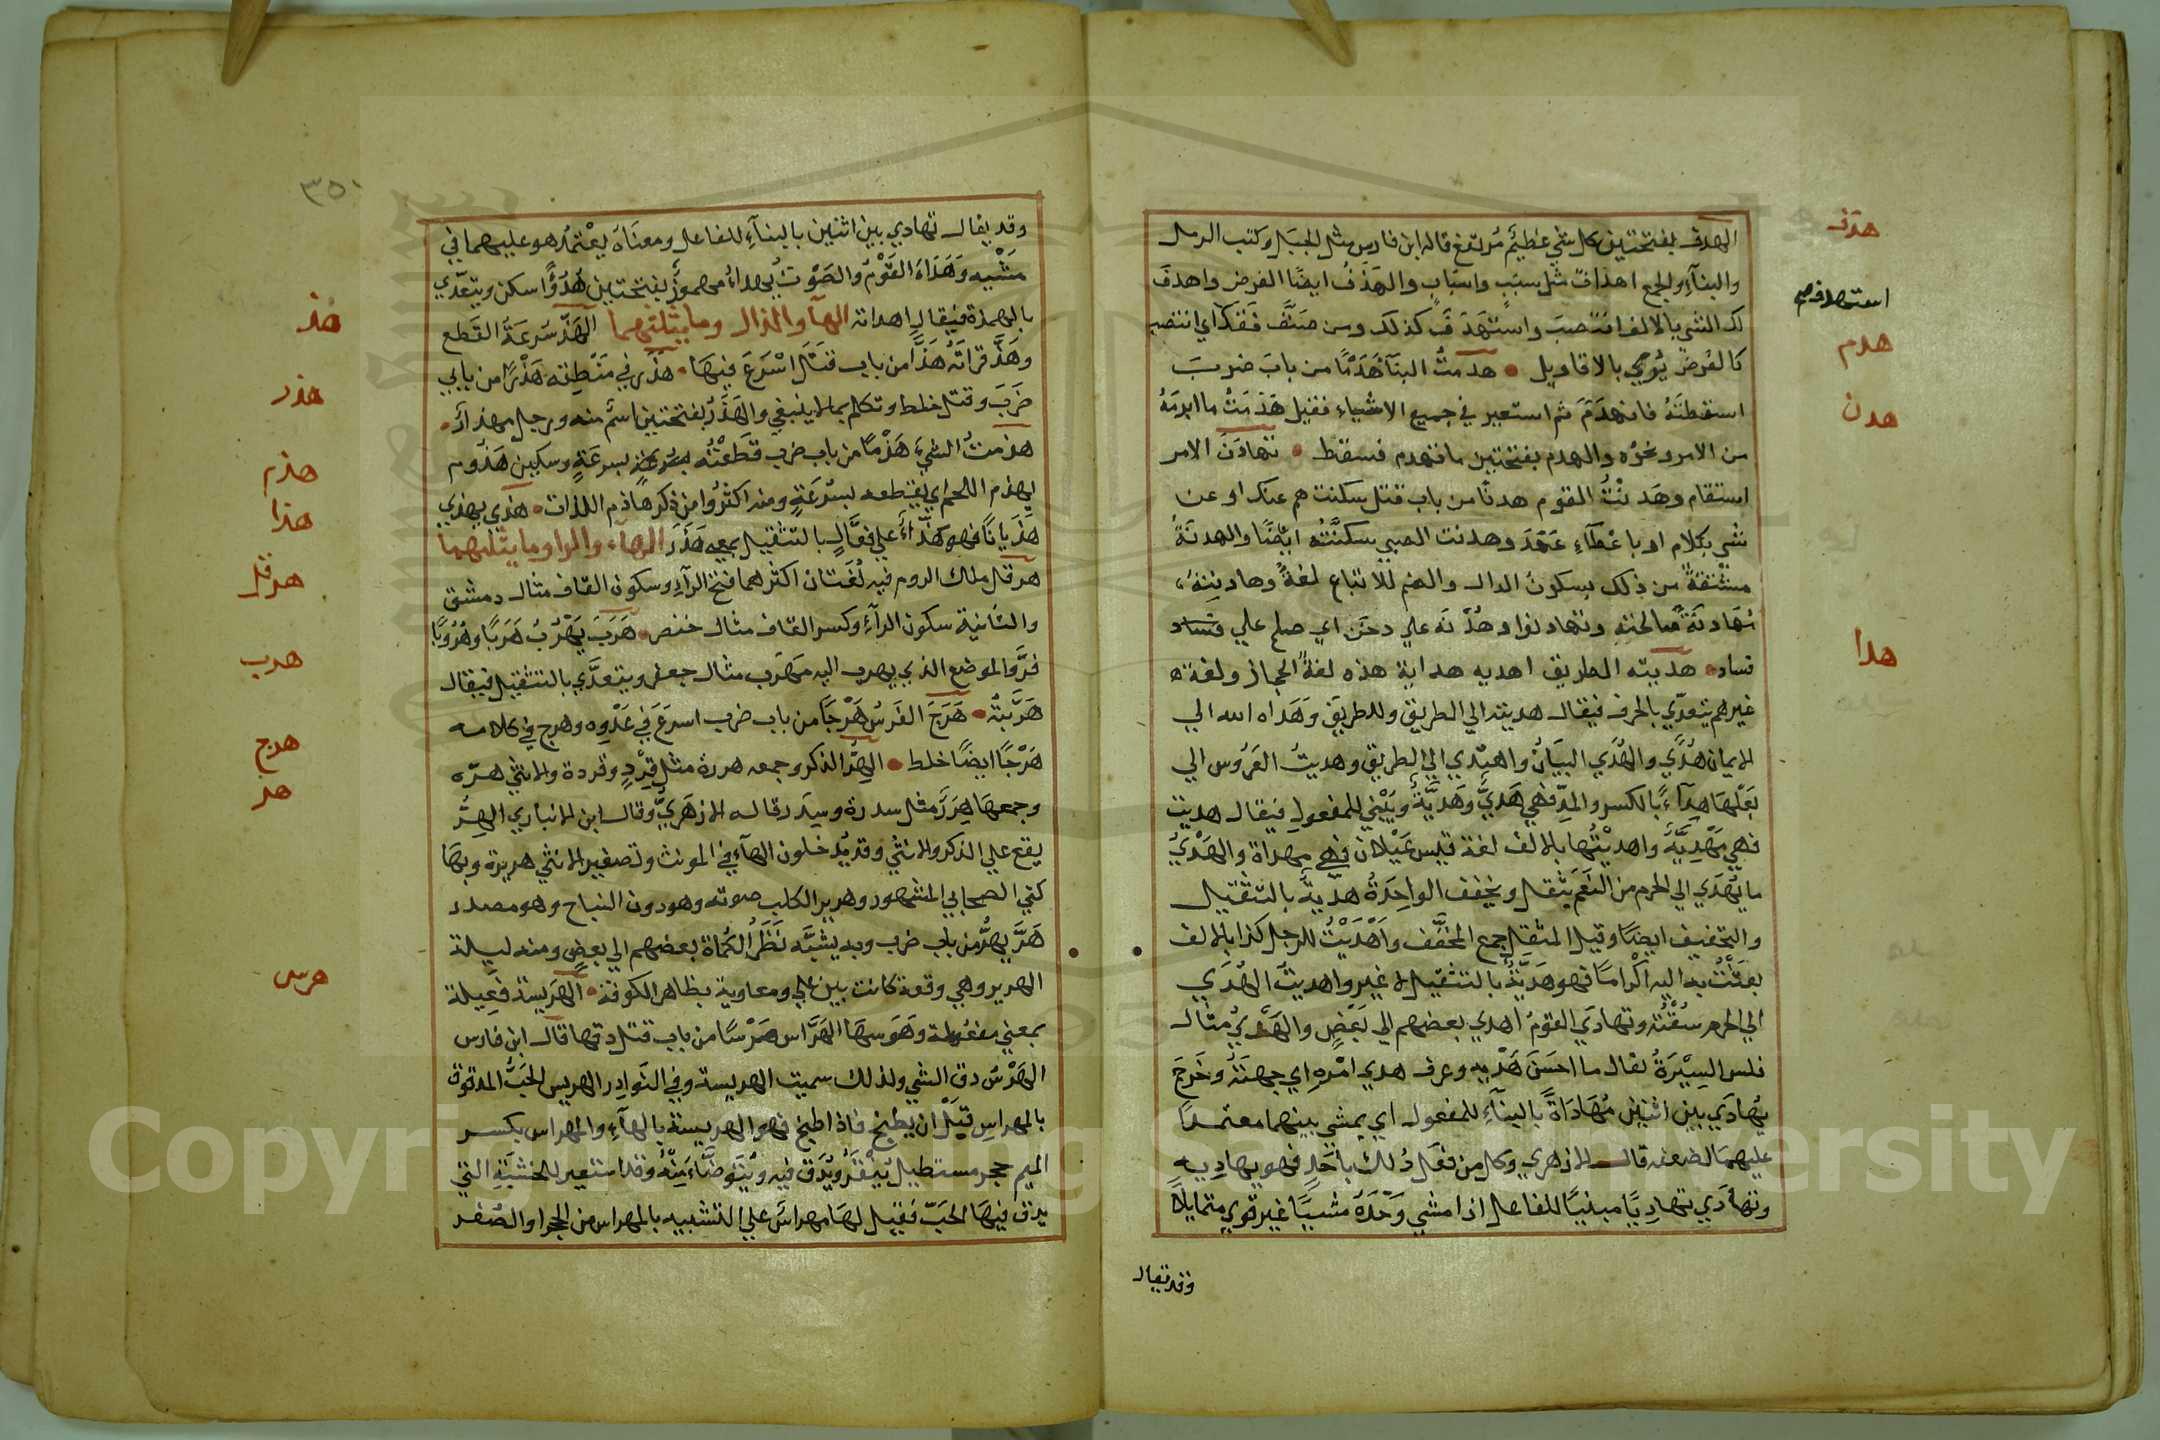 هدف
الهدف بفتحتين كل شي عظيم مرتفع قاله ابن فارس مثل الجبل وكثب الرمل
والبنآءِ والجمع اهداف مثل سبب واسباب والهدف ايضًا الغرض واهدف
استهدف
لك الشي بالالف انتصب واستهدف كذلك ومن صنّف فقد استهدف اي انتصب
هدم
كالغرض يُرمي بالاقاويل • هدمتُ البنآءَ هَدْمًا من باب ضرب
اسقطتَهُ فانهدَمَ ثم استعير في جميع الاشياء فقيل هَدَمْتُ ما ابرمَهُ
هدن
من الامر ونحوه والهدم بفتحتين ما تهدم فسقط • تهادَنَ الامر
استقام وهَدنْتُ القوم هدنًا من باب قتل سكنتهم عنك او عن
شي بكلام او باعْطآءِ عَهْدَ وهدنت الصبي سكنَّتُه ايضًا والهدنَةُ
مشتقةٌ من ذلك بسكون الدال والضم للاتباع لغةٌ وهادنتهُ
مُهَادنَةً صَالحته وتهادنوا وهُدْنَه علي دخَن اي صلح علي فساد
هدا
فساد • هديته الطريق اهديه هداية هذه لغةُ الحجاز ولغة
غيرهم يتعدّي بالحرف فيقال هديته الي الطريق وللطريق وَهَداه الله الي
الايمان هُدًي والهُدَي البيَانُ واهتدي الي الطريق وهديتُ العَرُوس الي
بَعْلهَا هِدآءً بالكسر والمدّ فهي هَديٌّ وَهَديَّةٌ ويُبْني للمفعول فيقال هديت
فهي مَهْدِيَّةٌ واهديْتُها بالالف لغة قيس عَيْلان فهي مهداة والهَدْيُ
ما يُهْدَي الي الحرم من النعَم يثقل ويخفف الواحِدَةُ هديةٌ بالتثقيل
والتخفيف ايضًا وقيل المثقل جمع المخفَّف واَهْدَيْتُ للرجل كذا بالالف
بعَثْتُ به اليه اكْرامًا فهو هَديَّةٌ بالتثقيل لا غير واهديتُ الهَدَي
الي الحرم سُقْتُه وتهادَي القومُ اهدي بعضهم الي بَعْضٍ والهَدْيُ مثال
فلس السِيْرَةُ يقال ما احسَنَ هَدْيه وعرف هدي امْرِهِ اي جهتَهُ وخَرجَ
يُهادَي بين اثنين مُهَادَاةً بالبنآءِ للمفعول اي يمشي بينهما معتمدًا
عليهمَا لضعفه قال الازهري وكل من فعَل ذُلك باحَدٍ فهو يهادِيه
وتهَادَي تهادِيًا مبنيًا للفاعل اذا مشي وَحْدَهُ مشيًا غير قوي متمايلًا
وقد يقال
٣٥١
وقد يقال تهادي بين اثنين بالبنآءِ للفاعل ومعنَاهُ يعْتمدُ هو عليهما في
مَشْيه وَهَدَاءَ القَوْمُ والصَوْتُ يهدأُ مهموزٌ بفتحتين هُدُوًّا سكن ويتعَدّي
هذ
بالهمزة فيقال اهداته الهآ والذال وما يثلثهما الهَذّ سُرعَةُ القَطع
وهَذَّ قراتَهُ هَذًّا من باب قتَلَ اسْرَعَ فيهَا • هذر في مَنْطِقه هَذْرًا من بابي
هذر
ضَرَبَ وقتل خلط وتكلم بما لا ينبغي والهَذَرُ بفتحتين اسمٌ منه ورجل مهذارٌ •
هذم
هذمتُ الشيءَ هَذْمًا من باب ضرب قطَعْتُه بسرعَةٍ وسكين هَذُوم
يهذم اللحم اي يقطعه بسُرعَةٍ ومنه اكثرُوا من ذكر هاذم اللذات • هذي يهذي
هذا
هَذَيانًا فهو هذّآءٌ علي فعَّالٍ بالتثقيل بمعنى هَذَرَ الهآء والراء وما يثلثهما
هرقل
هرقل ملك الروم فيه لُغتان اكثرهما فتح الرآءِ وسكون القاف مثال دمشق
والثانية سكون الرآءِ وكسر القاف مثال خنصر • هَرَبَ يَهْرُبُ هَرَبًا وهُرُوبًا
هرب
فَرَّ والموضع الذي يهرب اليه مَهرَب مثال جعفر ويتعدَّي بالتثقيل فيقال
هَرَّبتُهُ • هَرَجَ الفَرَسُ هَرْجًا من باب ضرب اسرَعَ في عَدْوِه وهرج في كلامه
هرج
هَرْجًا ايضًا خلط • الهِرُّ الذكر وجمعه هررة مثل قِرْدٍ وقردة والانثي هرّه
هر
وجمعها هِرَرٌ مثل سدرة وسِدَر قاله الازهَريُّ وقال ابن الانباري الهِرُّ
يقع علي الذكر والانثي وقد يُدخلون الهآءِ في المونث وتصغير الانثي هريرة وبها
كني الصحابي المشهور وهرير الكلب صوته وهو دون النباح وهو مصدر
هَرَّ يهِرُّ من باب ضرب وبه يشبَّه نَظَرُ الكُماة بعضهم الي بعض ومنه ليلة
هرس
الهرير وهي وقعة كانت بين علي ومعاوية بظاهر الكوفة • الهَرِيسة فَعِيلة
بمعني مفعُولة وَهَرسهَا الهَرَّاس هَرْسًا من باب قتل دقها قال ابن فارس
الهَرْسُ دق الشي ولذلك سميت الهريسة وفي النَوادِر الهريس الحَبُّ المدقوق
بالمهراسِ قبْلَ ان يطبخ فاذا طبخ فهو الهريسة بالهآءِ والمهراس بكسر
الميم حجر مستطيل يُنْقَرُ ويُدَق فيه ويُتَوضَّاءُ مِنْهُ وقد استعير للخشبَةِ التي
يدق فيهَا الحَبّ فقيل لهَا مهراسٌ علي التشبيه بالمهراس من الحجر او الصُفر
Copyright © King Saud University